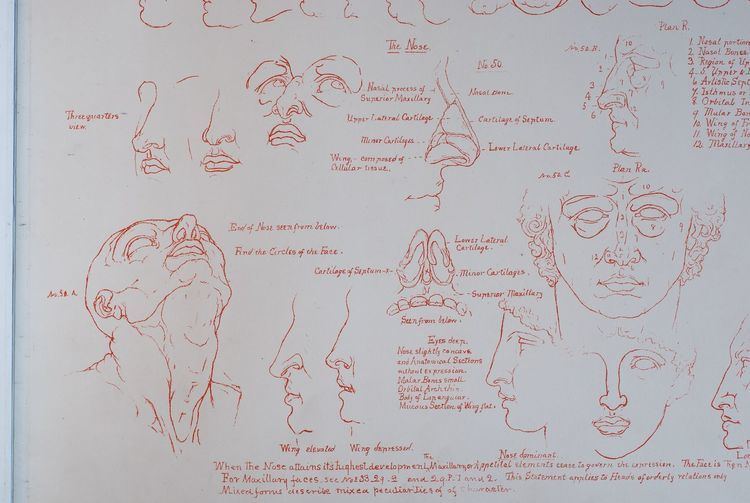 Plan R.
The Nose.
No. 50.
No. 52. B.
10
1. Nasal portion
2. Nasal Bones
3. Region of Up
4. 5. Upper &
6. Artistic Sept
7. Isthmus or
8. Orbital In
9. Malar Bon
10. Wing of Fr
11. Wing of No
12. Maxillary
Nasal process of
Superior Maxillary
Nasal Bone.
Upper Lateral Cartilage
Cartilage of Septum
Minor Cartilages
Lower Lateral Cartilage
Wing - composed of
Cellular tissue.
Three quarters
view.
Plan Ra.
No. 52. C.
10
End of Nose seen from below.
Find the Circles of the Face.
Lower Lateral
Cartilage.
Cartilage of Septum
Minor Cartilages.
Superior Maxillary
Seen from below.
No. 52. A.
Eyes deep.
Nose slightly concave
and Anatomical Sections
without expression.
Malar Bones small.
Orbital Arch thin.
Body of Lip angular.
Mucous Section of Wing flat.
Wing elevated
Wing depressed.
Nose dominant.
When the Nose attains its highest development, The Maxillary or Appetital elements cease to govern the expression. The Face is
For Maxillary faces, see and 2. This Statement applies to Heads of orderly relations only
Mixed forms describe mixed peculiarities of of Character.